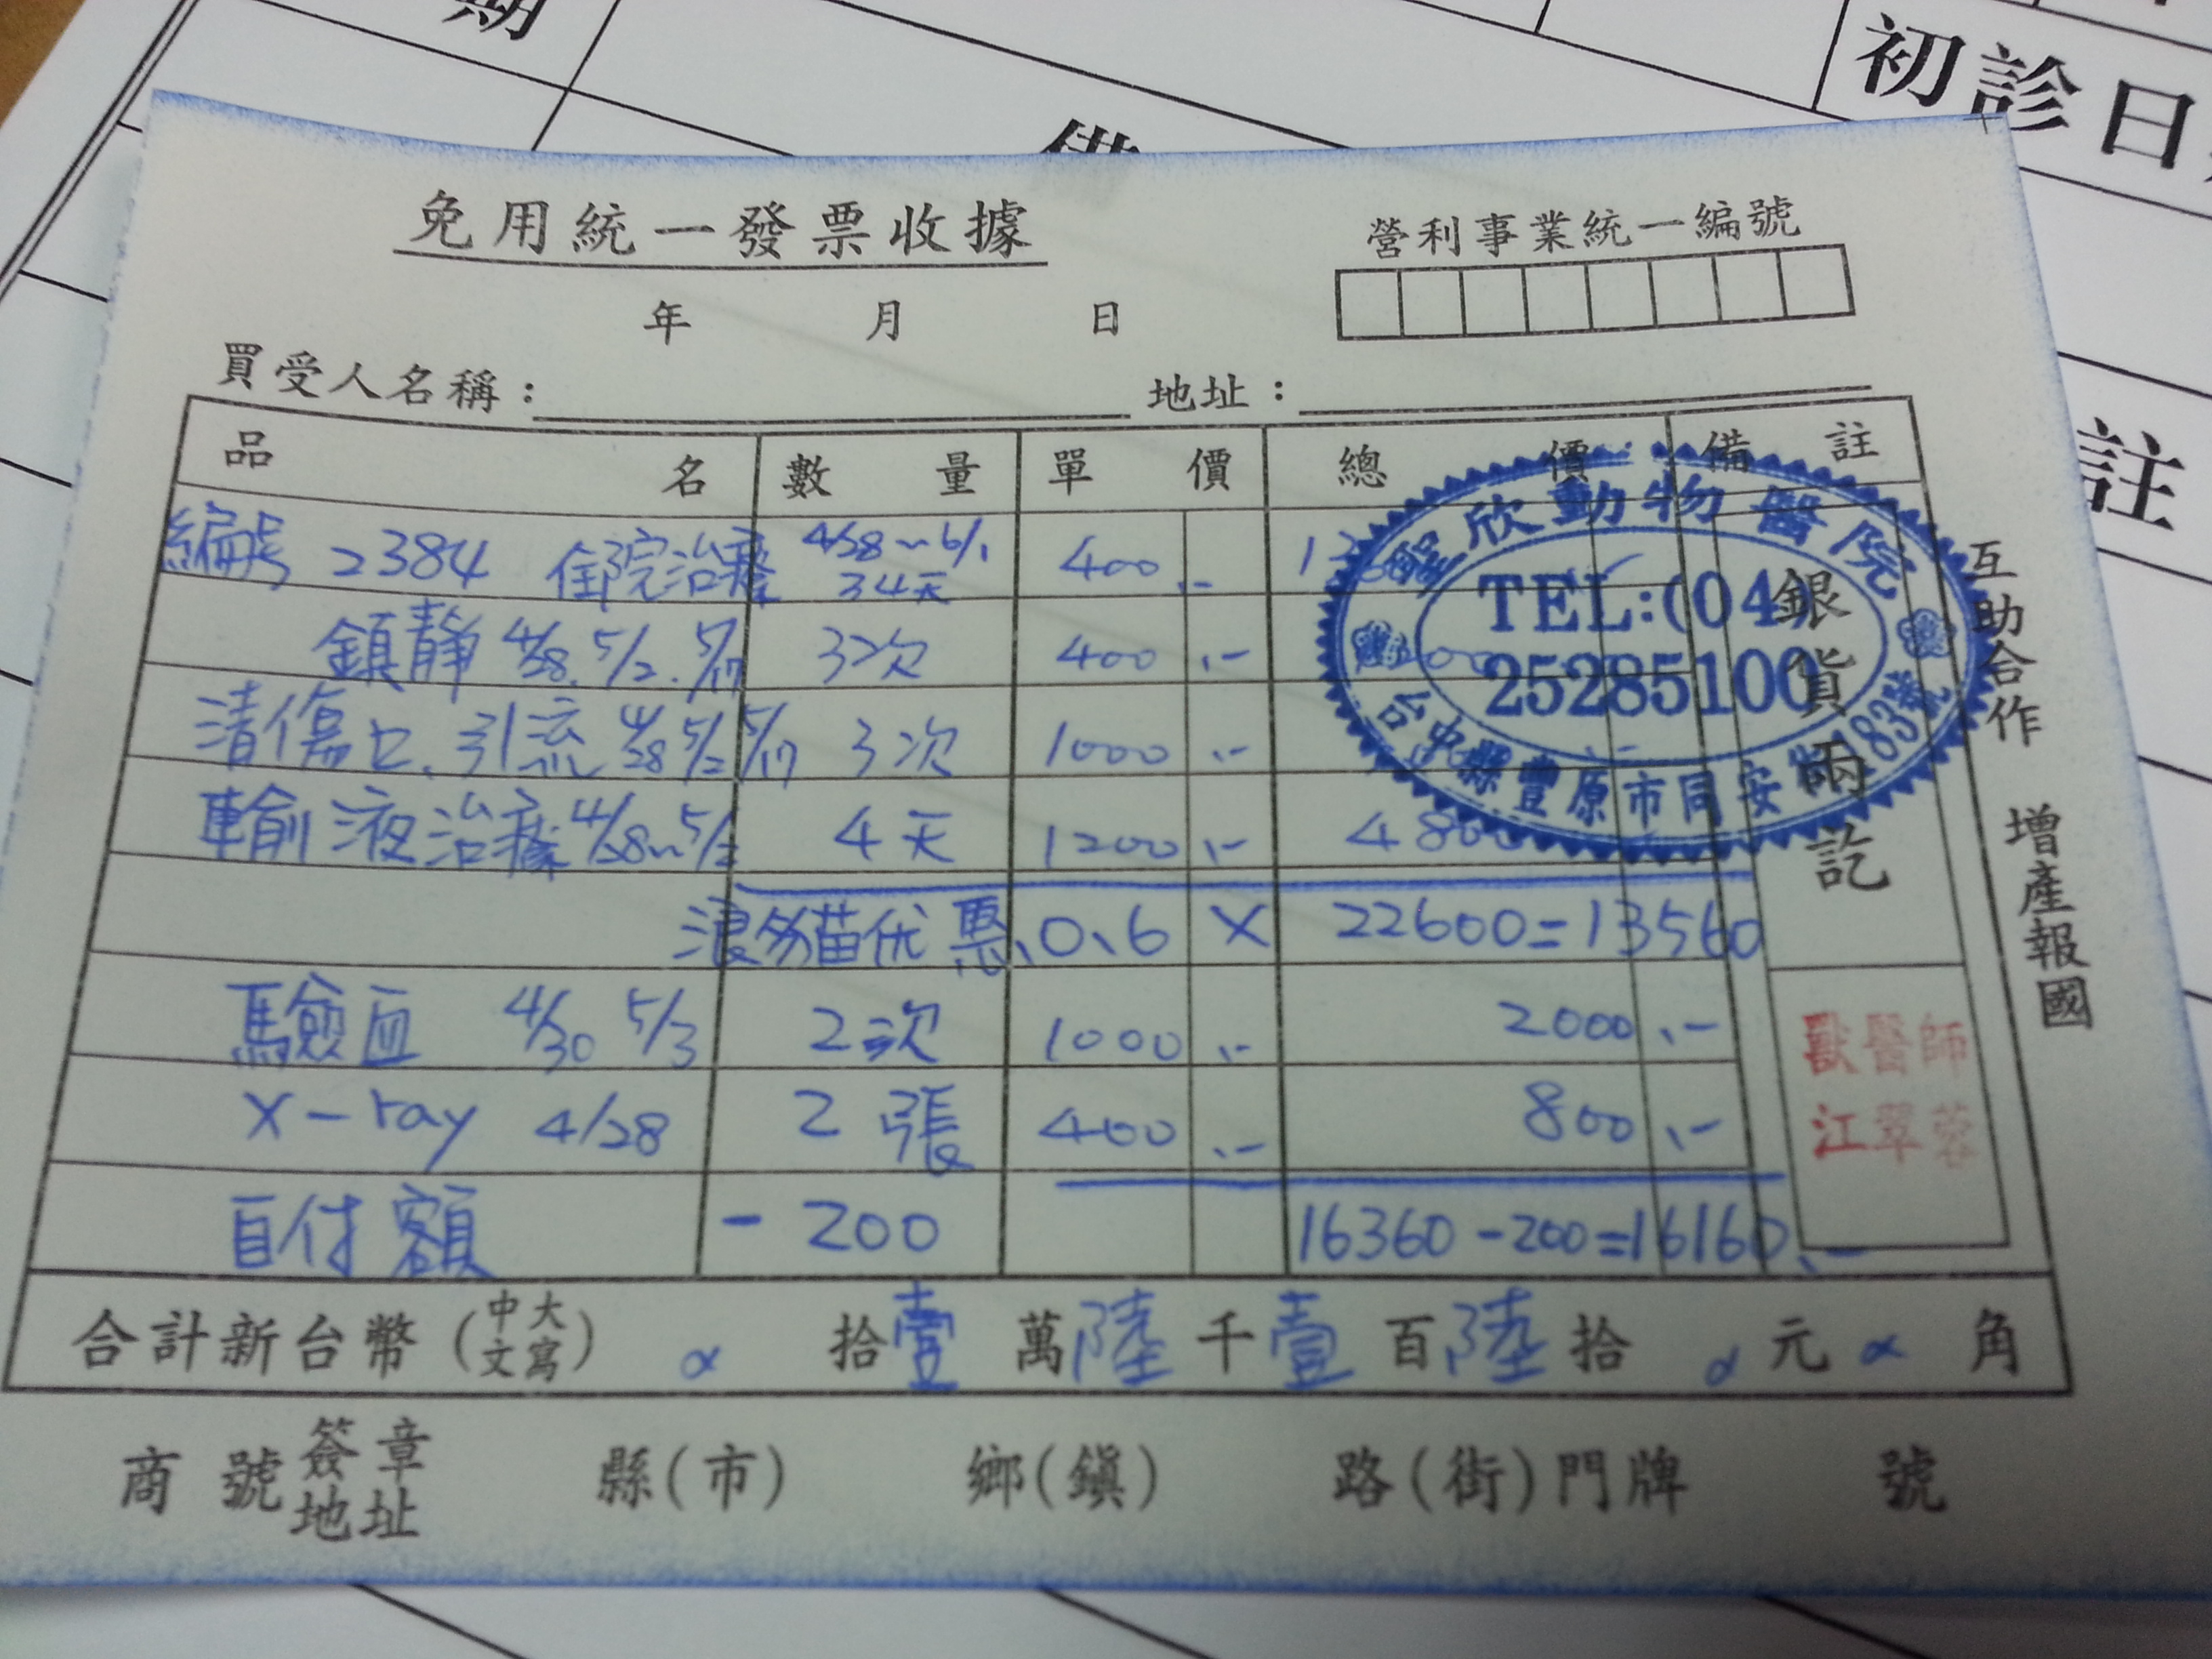 初診日
註
免用統一發票收據
營利事業統一編號
年 月 日
買受人名稱: 地址:
品名 數量 單價 總價 備註
編號 2384 住院治療 4/28~6/1 34天 400.-
鎮靜 4/28. 5/2. 5/17 3次 400.-
清傷口、引流 4/28 5/2 5/17 3次 1000.-
輸液治療 4/28~5/2 4天 1200.- 4800
浪貓优惠、0.6 × 22600=13560
驗血 4/30 5/3 2次 1000.- 2000.-
X-ray 4/28 2張 400.- 800.-
自付額 -200 16360-200=16160.-
聖欣動物醫院
TEL:(04)
25285100
台中縣豐原市同安街183號
銀貨兩訖
獸醫師
江翠蓉
互助合作 增產報國
合計新台幣(中文大寫) 拾壹萬陸千壹百陸拾 元 角
商號簽章地址 縣(市) 鄉(鎮) 路(街)門牌 號